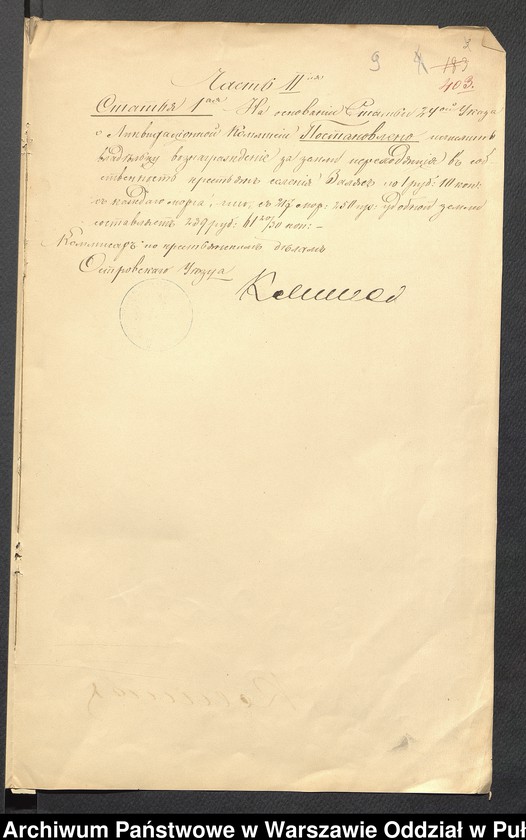 9 4 183 3
403.
Часть II ая
Статья 1 ая На основаніи Статьи 24 ой Указа
о Ликвидаціонной Коммисіи Постановлено исчислить
владѣльцу вознагражденіе за земли переходящія въ соб-
ственность крестьянъ селенія по 1 руб: 10 коп:
съ каждаго морга, что, съ 217 мор: 250 пр: удобной земли
составляетъ 239 руб: 61 20/30 коп: —
Коммисаръ по крестьянскимъ дѣламъ
Островскаго Уѣзда
Archiwum Państwowe w Warszawie Oddział w Puł